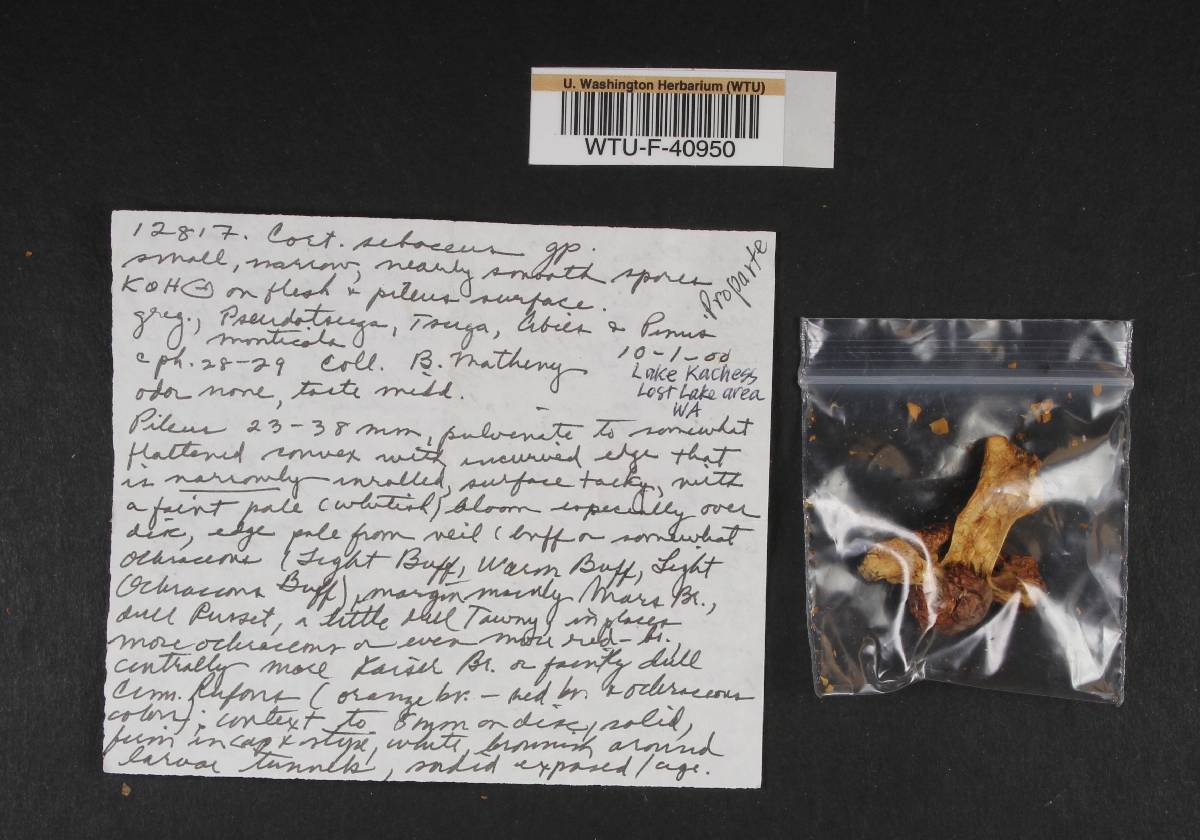 U. Washington Herbarium (WTU)
WTU-F-40950
12817. Cort. sebaceus gp.
small, narrow, nearly smooth spores
KOH(-) on flesh & pileus surface.
Proparte
greg., Pseudotsuga, Tsuga, Abies & Pinus
monticola
c ph. 28-29 Coll. B. Matheny
10-1-00
Lake Kachess
Lost Lake area
WA
odor none, taste mild.
Pileus 23-38 mm, pulvinate to somewhat
flattened convex with incurved edge that
is narrowly inrolled, surface tacky, with
a faint pale (whitish) bloom especially over
disc, edge pale from veil (buff or somewhat
ochraceous (Light Buff, Warm Buff, Light
Ochraceous Buff), margin mainly Mars Br.,
dull Russet, a little dull Tawny, in places
more ochraceous or even more red-br.
centrally more Kaiser Br. or faintly dull
Cinn. Rufous (orange br. - red br. & ochraceous
colors); context to 8 mm on disc, solid,
firm in cap & stipe, white, brownish around
larvae tunnels, sordid exposed/age.